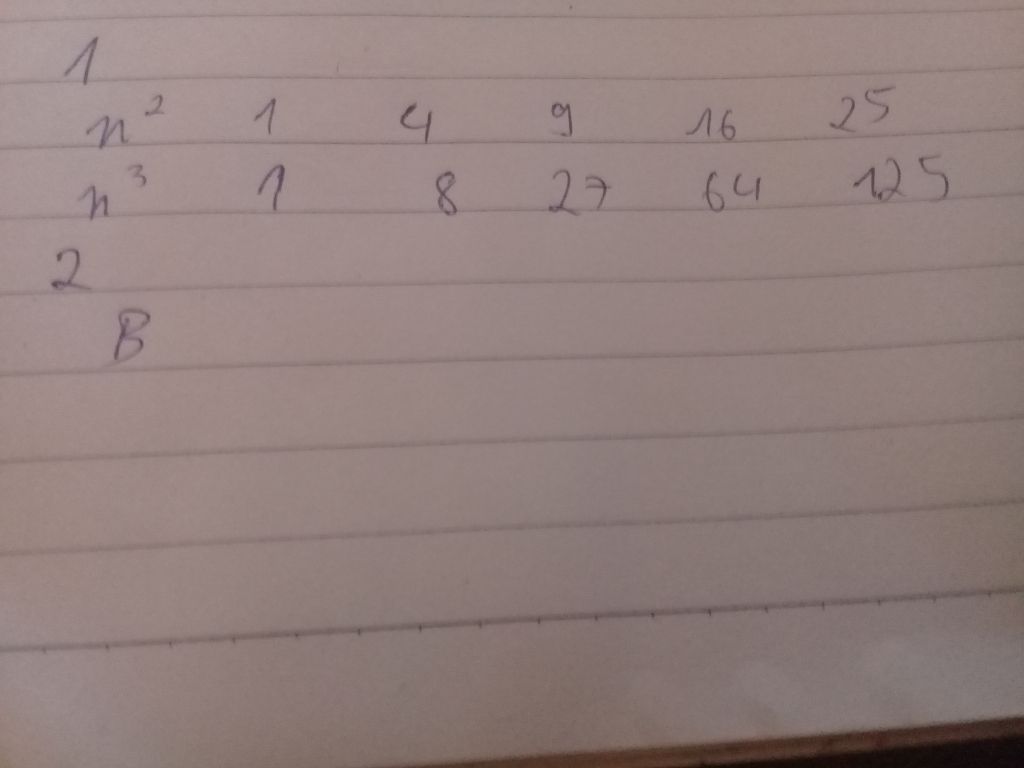 1
n² 1 4 9 16 25
n³ 1 8 27 64 125
2
B